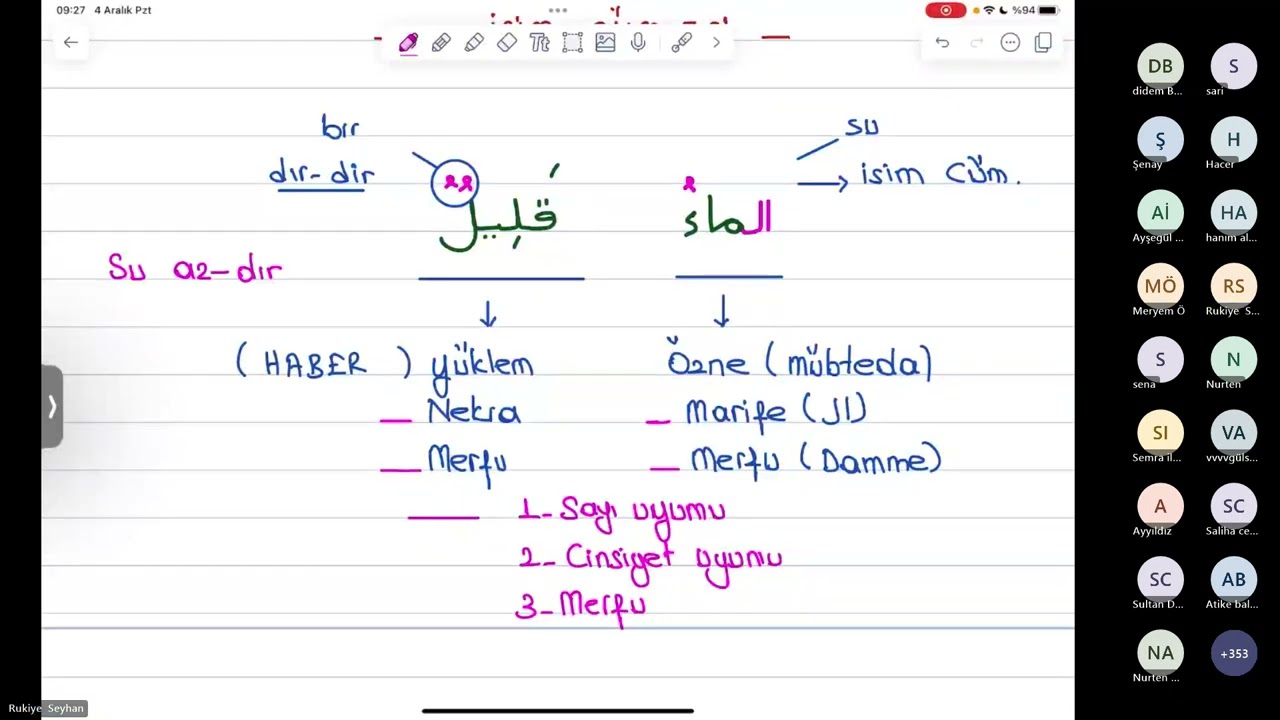 09:27 4 Aralık Pzt
%94
bir
su
dır-dir
isim Cüm.
الماءُ قَلِيلٌ
Su az-dır
(HABER) yüklem
Özne (mübteda)
— Nekra
— Marife (ال)
— Merfu
— Merfu (Damme)
1- Sayı uyumu
2- Cinsiyet uyumu
3- Merfu
DB
didem B...
S
sari
Ş
Şenay
H
Hacer
Aİ
Ayşegül ...
HA
hanım al...
MÖ
Meryem Ö
RS
Rukiye S...
S
sena
N
Nurten
SI
Semra il...
VA
vvvvgüls...
A
Ayyıldız
SC
Saliha ce...
SC
Sultan D...
AB
Atike bal...
NA
Nurten ...
+353
Rukiye Seyhan